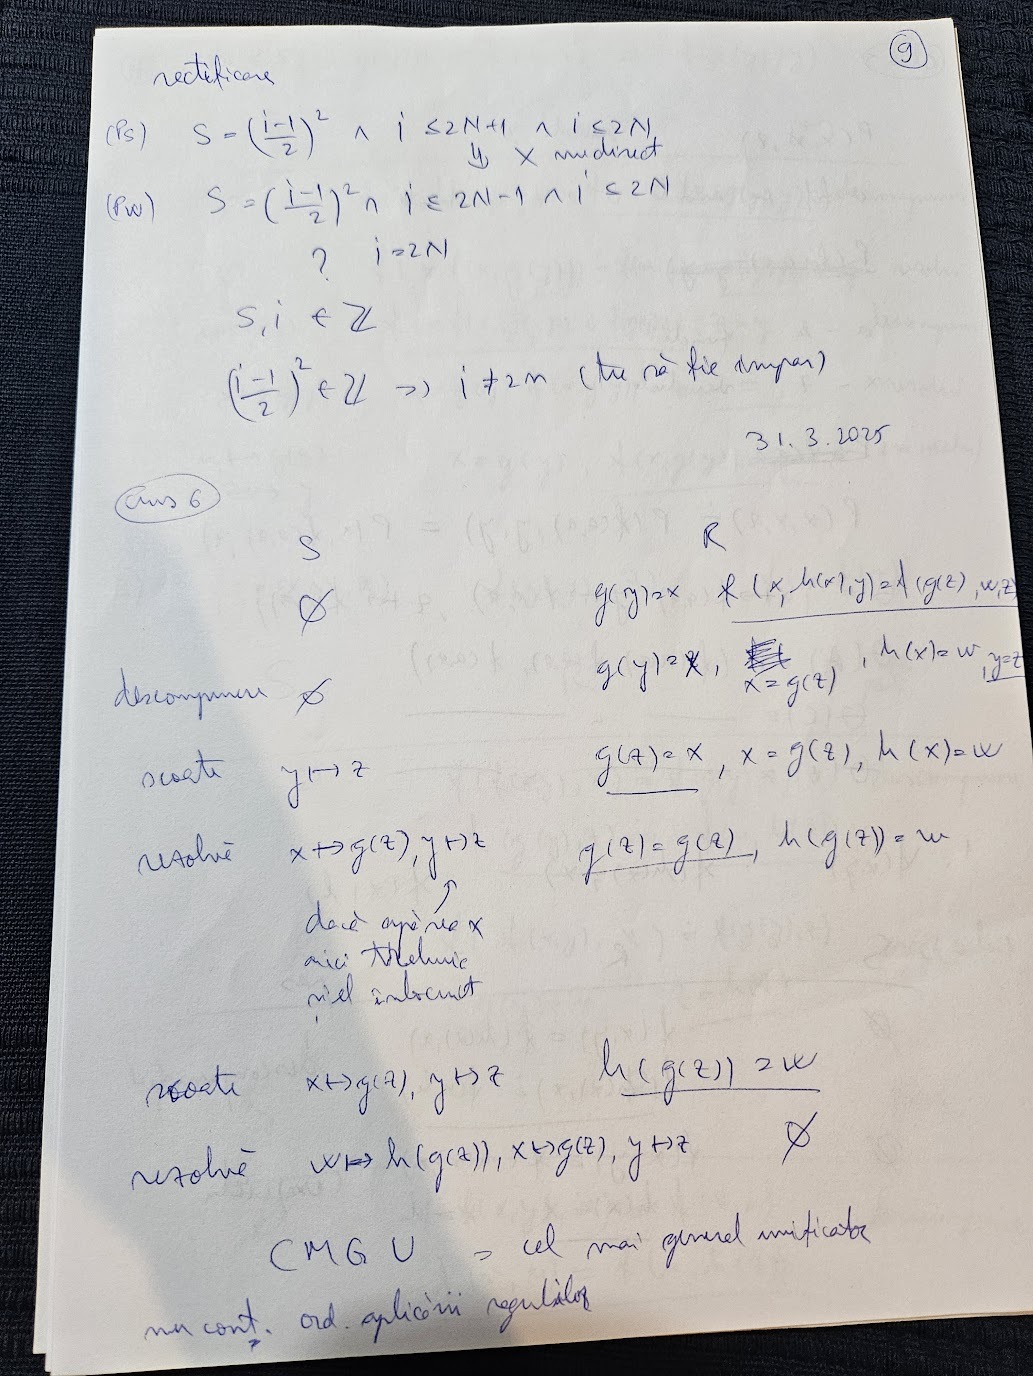 9
rectificare
(Ps) S = (i-1/2)² ∧ i ≤ 2N+1 ∧ i ≤ 2N
⇓ X nu direct
(Pw) S = (i-1/2)² ∧ i ≤ 2N-1 ∧ i ≤ 2N
? i = 2N
S, i ∈ ℤ
(i-1/2)² ∈ ℤ => i ≠ 2n (tre să fie impar)
31.3.2025
curs 6
S R
∅ g(y)=x f(x, h(x), y) = f(g(z), w, z)
descompunere ∅ g(y)=x, x=g(z), h(x)=w, y=z
scoate y↦z g(z)=x, x=g(z), h(x)=w
rezolvă x↦g(z), y↦z g(z)=g(z), h(g(z))=w
dacă apărea x
aici trebuie
și el înlocuit
scoate x↦g(z), y↦z h(g(z))=w
rezolvă w↦h(g(z)), x↦g(z), y↦z ∅
CMGU = cel mai general unificator
nu cont. ord. aplicării regulilor